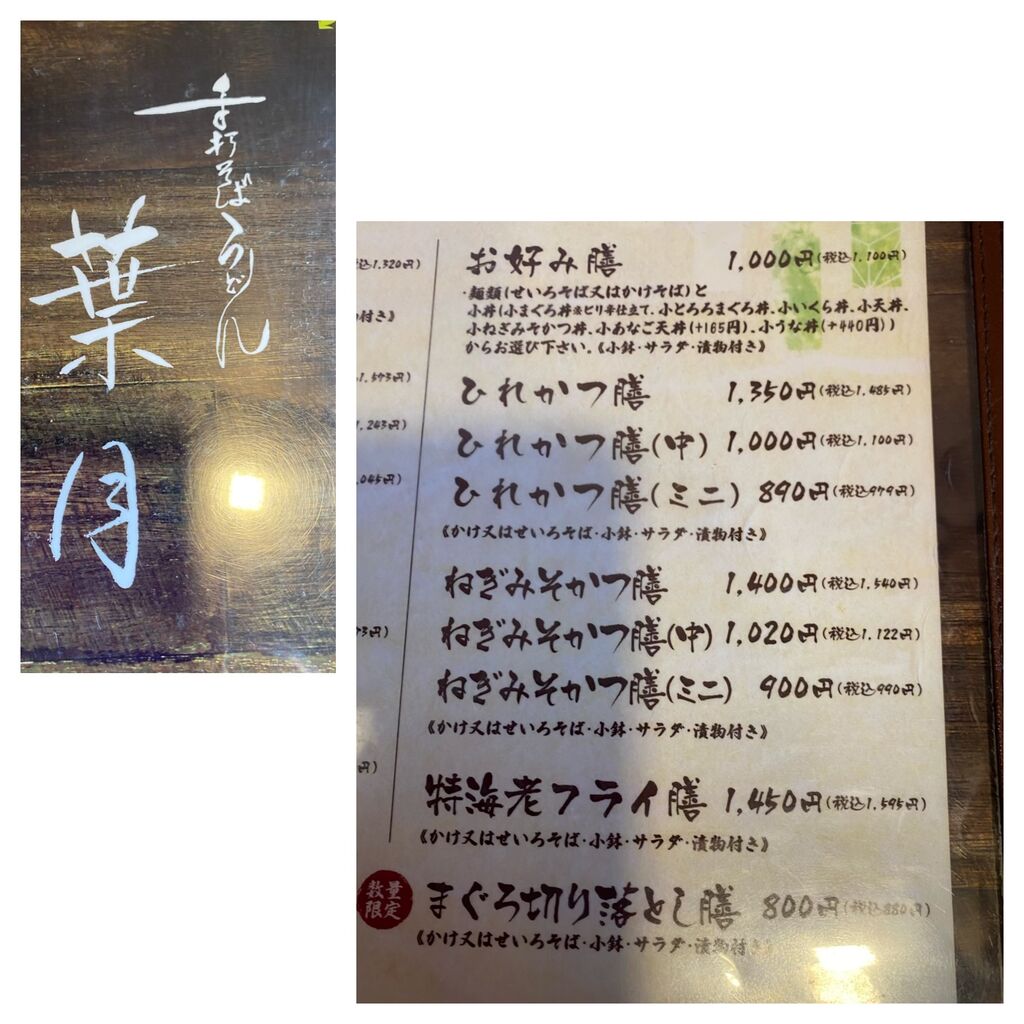 手打そばうどん
葉月
込1,320円)
付き》
1,573円)
1,243円)
,045円)
73円)
円)
お好み膳 1,000円(税込1,100円)
・麺類(せいろそば又はかけそば)と
小丼(小まぐろ丼※ピリ辛仕立て、小とろろまぐろ丼、小いくら丼、小天丼、
小ねぎみそかつ丼、小あなご天丼(+165円)、小うな丼(+440円))
からお選び下さい。《小鉢・サラダ・漬物付き》
ひれかつ膳 1,350円(税込1,485円)
ひれかつ膳(中) 1,000円(税込1,100円)
ひれかつ膳(ミニ) 890円(税込979円)
《かけ又はせいろそば・小鉢・サラダ・漬物付き》
ねぎみそかつ膳 1,400円(税込1,540円)
ねぎみそかつ膳(中) 1,020円(税込1,122円)
ねぎみそかつ膳(ミニ) 900円(税込990円)
《かけ又はせいろそば・小鉢・サラダ・漬物付き》
特海老フライ膳 1,450円(税込1,595円)
《かけ又はせいろそば・小鉢・サラダ・漬物付き》
数量
限定
まぐろ切り落とし膳 800円(税込880円)
《かけ又はせいろそば・小鉢・サラダ・漬物付き》